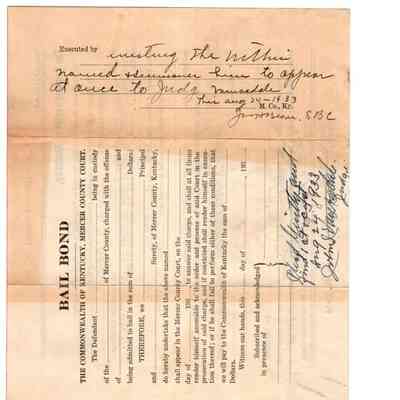 Executed by arresting the within
named & summons him to appear
at once to Judg
This Aug 24-1933
M. Co., Ky.
S.B.C
BAIL BOND
THE COMMONWEALTH OF KENTUCKY, MERCER COUNTY COURT.
The Defendant being in custody
of the of Mercer County, charged with the offense
of and
being admitted to bail in the sum of Dollars:
THEREFORE, we Principal
and Surety, of Mercer County, Kentucky,
do hereby undertake that the above named
shall appear in the Mercer County Court, on the
day of 193 to answer said charge, and shall at all times
render himself amenable to the order and process of said Court in the
prosecution of said charge, and if convicted shall render himself in execu-
tion thereof; or if he shall fail to perform either of these conditions, that
we will pay to the Commonwealth of Kentucky the sum of
Dollars.
Witness our hands, this day of 193
Subscribed and acknowledged
in presence of
Aug 24 1933
Judge